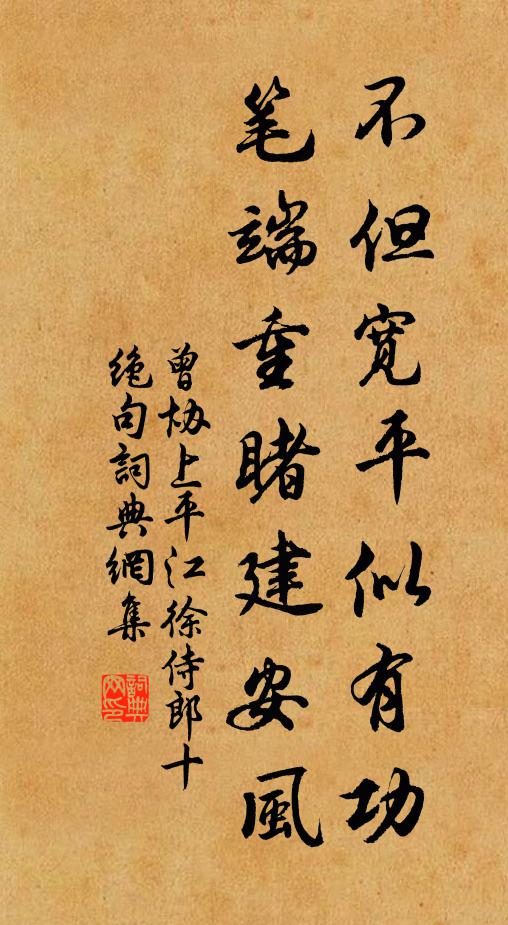 不但寬平似有功
笔端重睹建安風
曾协上平江徐侍郎十
絶句詞典網集
詞典
网印